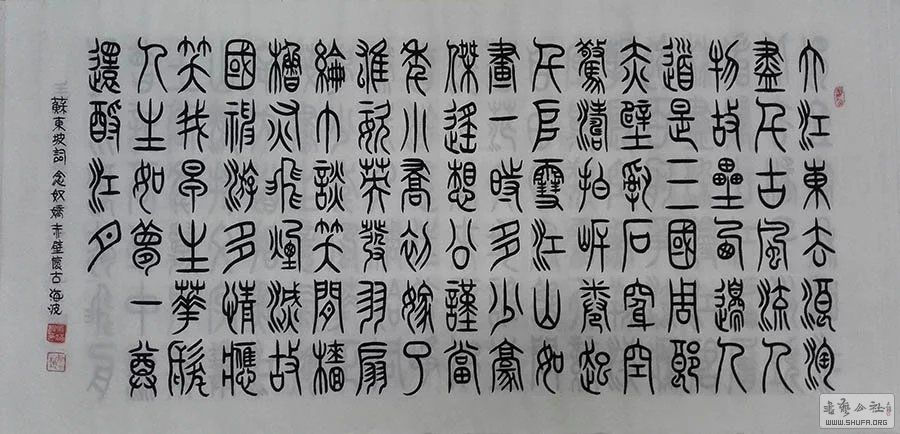 大江東去浪淘
盡千古風流人
物故壘西邊人
道是三國周郎
赤壁亂石穿空
驚濤拍岸卷起
千堆雪江山如
畫一時多少豪
傑遙想公瑾當
年小喬初嫁了
雄姿英發羽扇
綸巾談笑間檣
櫓灰飛煙滅故
國神游多情應
笑我早生華髮
人生如夢一尊
還酹江月
蘇東坡詞 念奴嬌赤壁懷古 海波
書藝公社
WWW.SHUFA.ORG